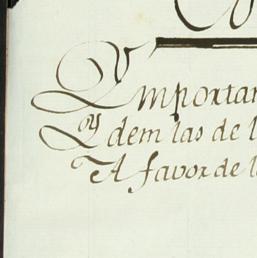 Ymportan
Ydem las de l
A favor de l